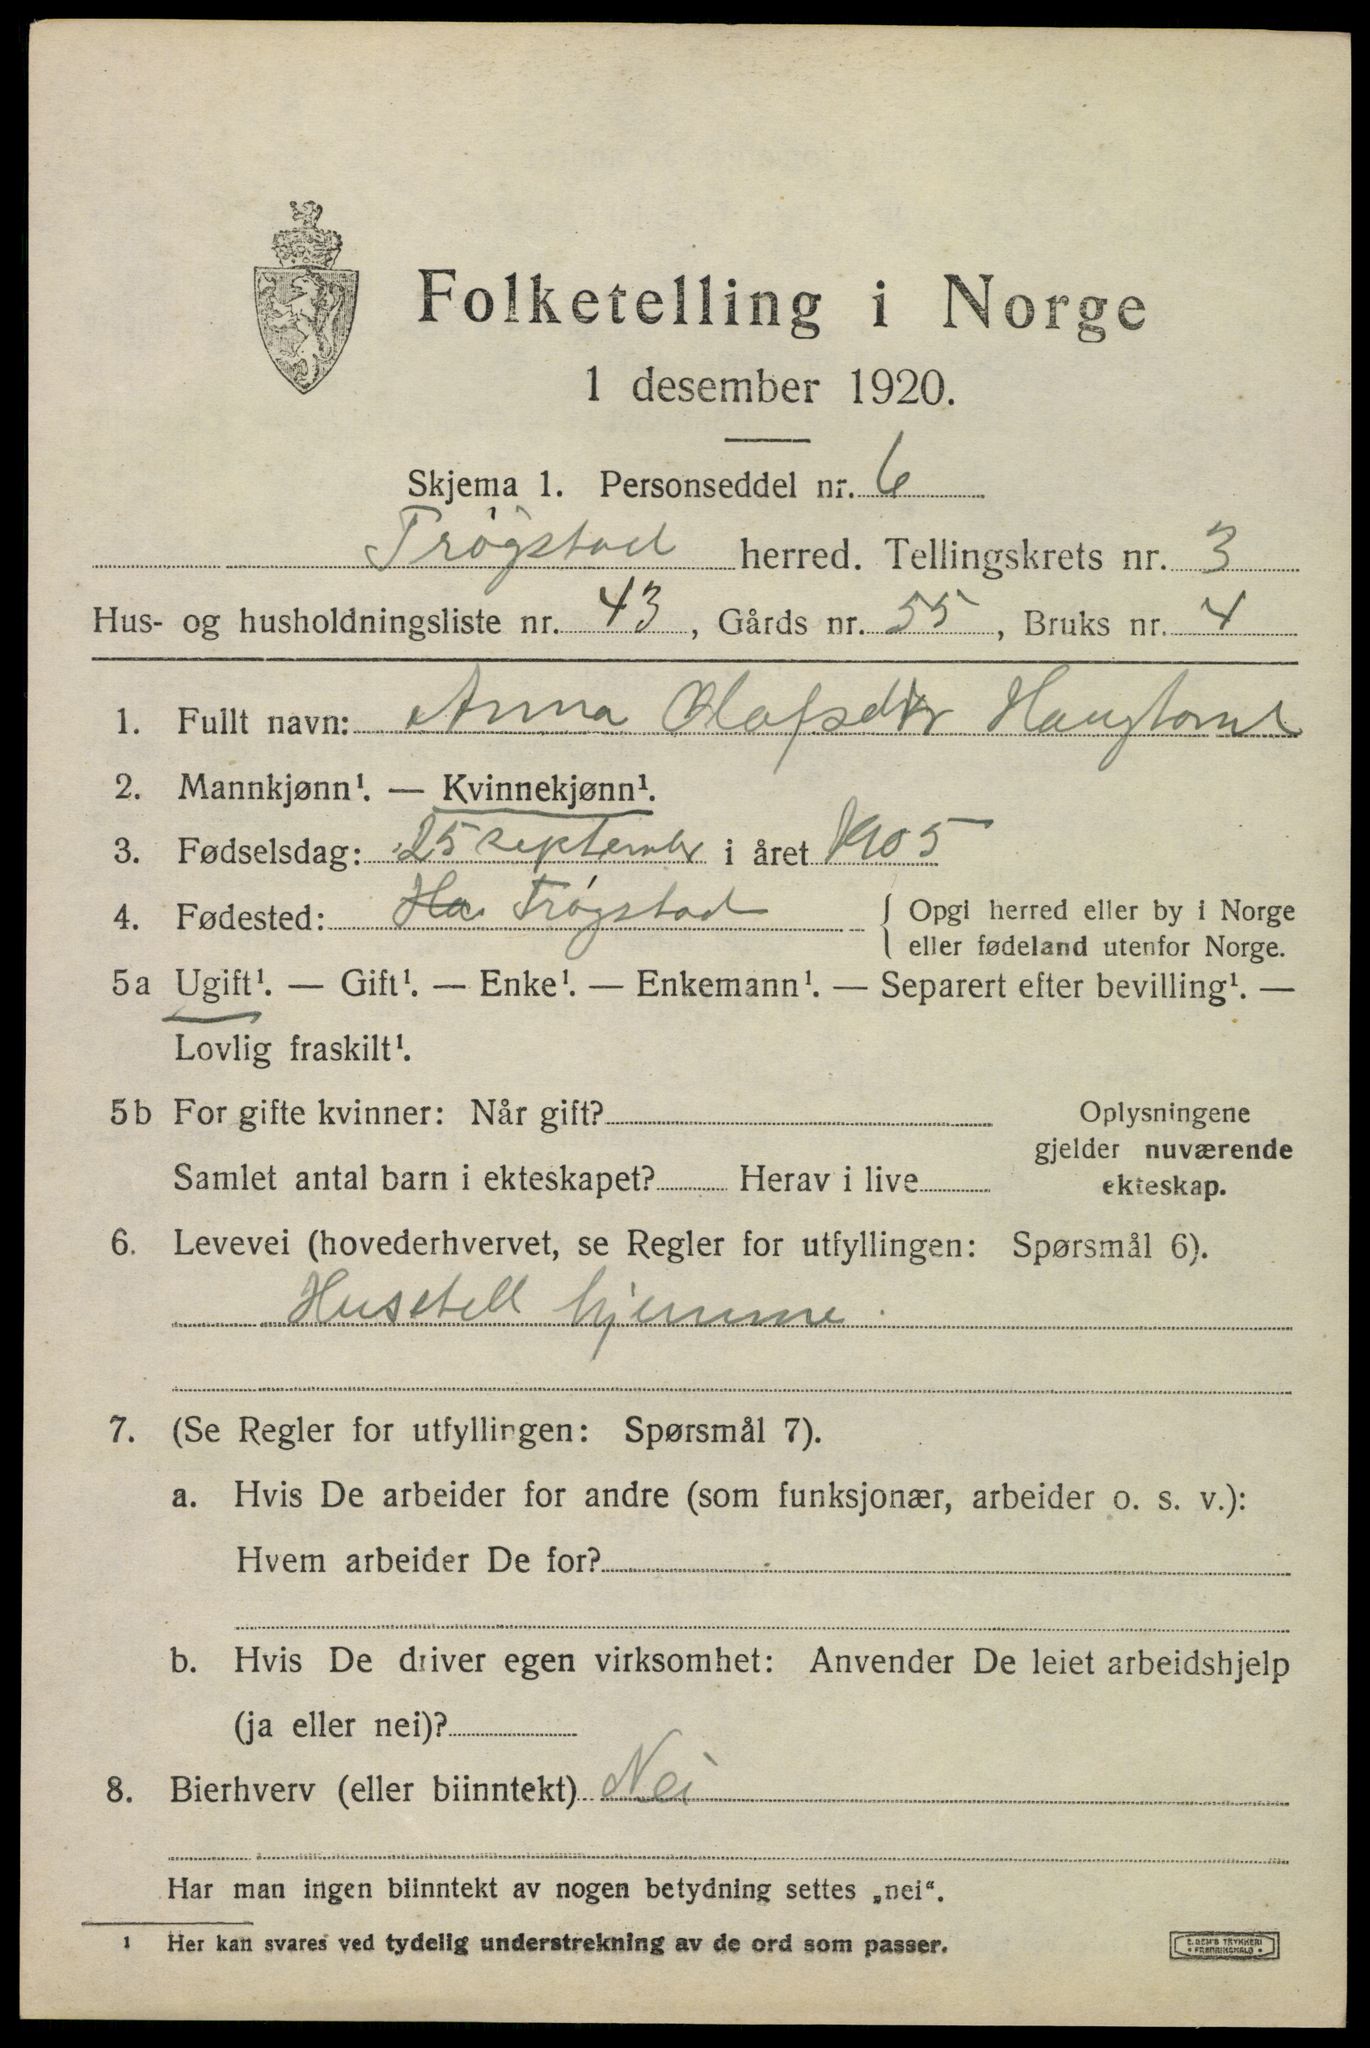 Folketelling i Norge
1 desember 1920.
Skjema 1. Personseddel nr. 6
Trøgstad herred. Tellingskrets nr. 3
Hus- og husholdningsliste nr. 43, Gårds nr. 55, Bruks nr. 4
1. Fullt navn: Anna Olafsdtr
2. Mannkjønn¹. — Kvinnekjønn¹.
3. Fødselsdag: 25 september i året 1905
4. Fødested: Ha Trøgstad { Opgi herred eller by i Norge
eller fødeland utenfor Norge.
5a Ugift¹. — Gift¹. — Enke¹. — Enkemann¹. — Separert efter bevilling¹. —
Lovlig fraskilt¹.
5b For gifte kvinner: Når gift?
Samlet antal barn i ekteskapet? Herav i live
Oplysningene
gjelder nuværende
ekteskap.
6. Levevei (hovederhvervet, se Regler for utfyllingen: Spørsmål 6).
Husstell hjemme.
7. (Se Regler for utfyllingen: Spørsmål 7).
a. Hvis De arbeider for andre (som funksjonær, arbeider o. s. v.):
Hvem arbeider De for?
b. Hvis De driver egen virksomhet: Anvender De leiet arbeidshjelp
(ja eller nei)?
8. Bierhverv (eller biinntekt) Nei
Har man ingen biinntekt av nogen betydning settes „nei“.
¹ Her kan svares ved tydelig understrekning av de ord som passer.